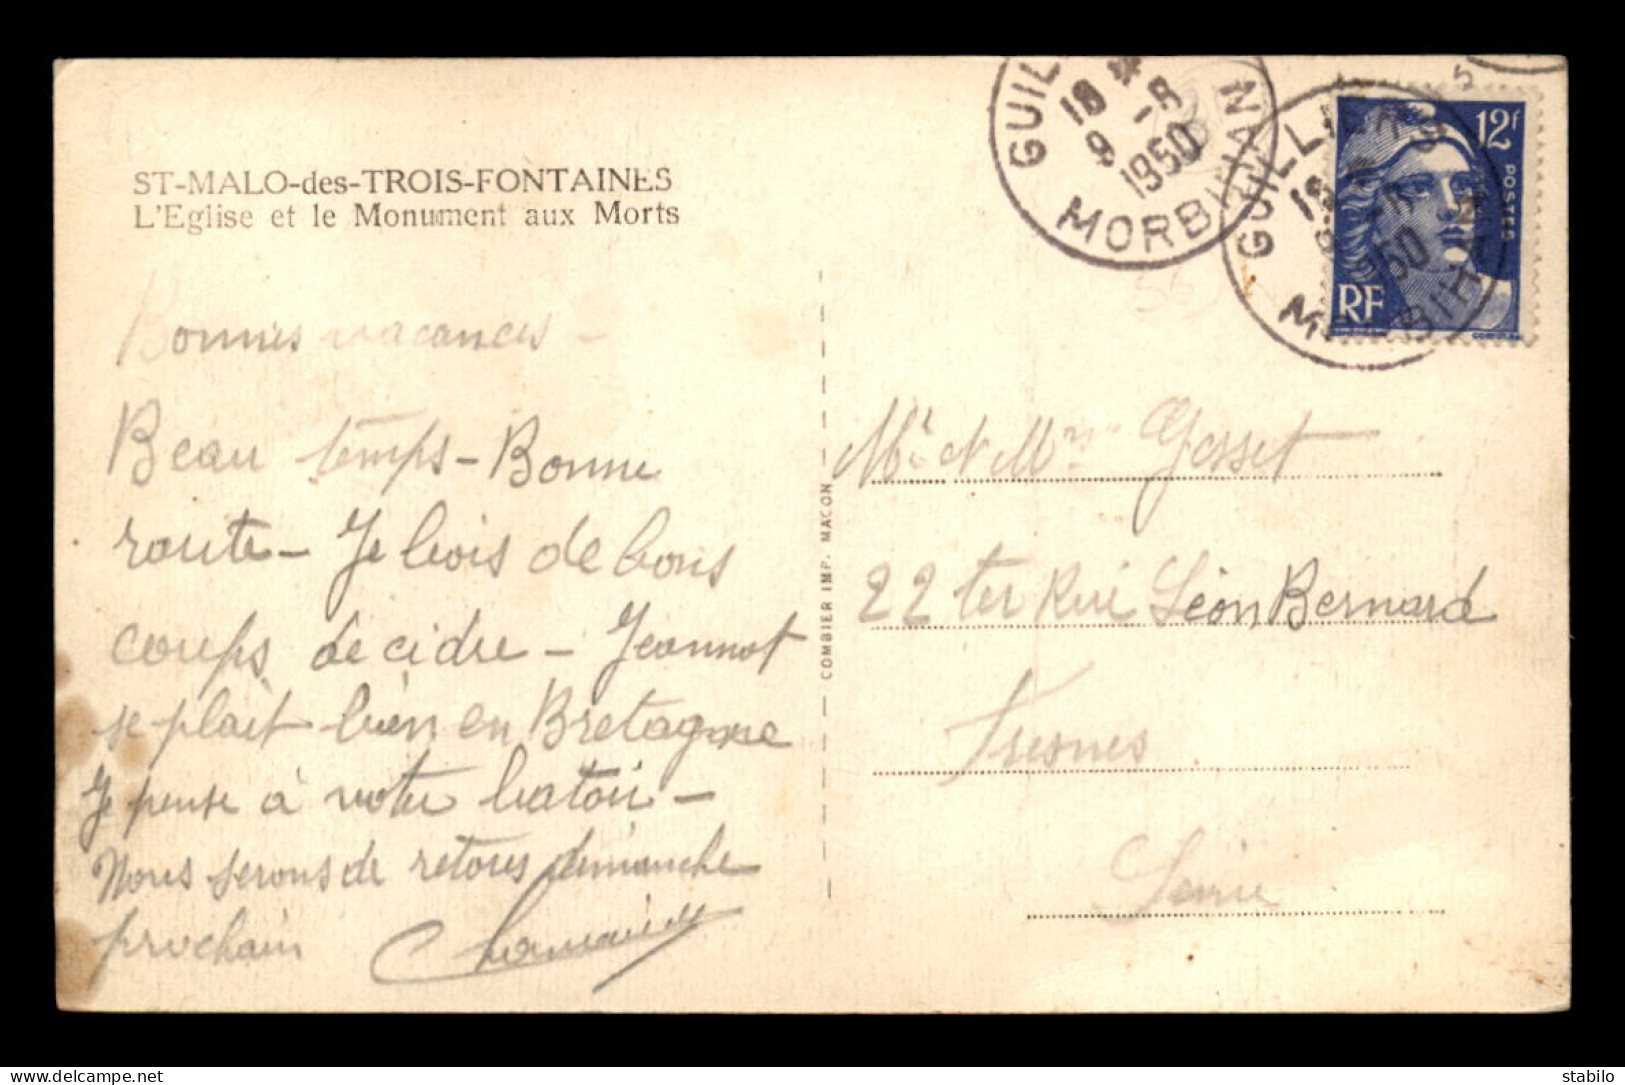 ST-MALO-des-TROIS-FONTAINES
L'Eglise et le Monument aux Morts
Bonnes vacances -
Beau temps - Bonne
route - Je bois de bons
coups de cidre - Jeannot
se plait bien en Bretagne
Je pense à votre
Nous serons de retour dimanche
prochain
COMBIER IMP. MACON
GUIL
18 *
9 -8
1950
MORBIHAN
GUILLIERS
18
9
1950
MORBIHAN
12f
POSTES
RF
Mr et Mme Gosset
22 ter Rue Léon Bernard
Fresnes
Seine
delcampe.net
stabilo